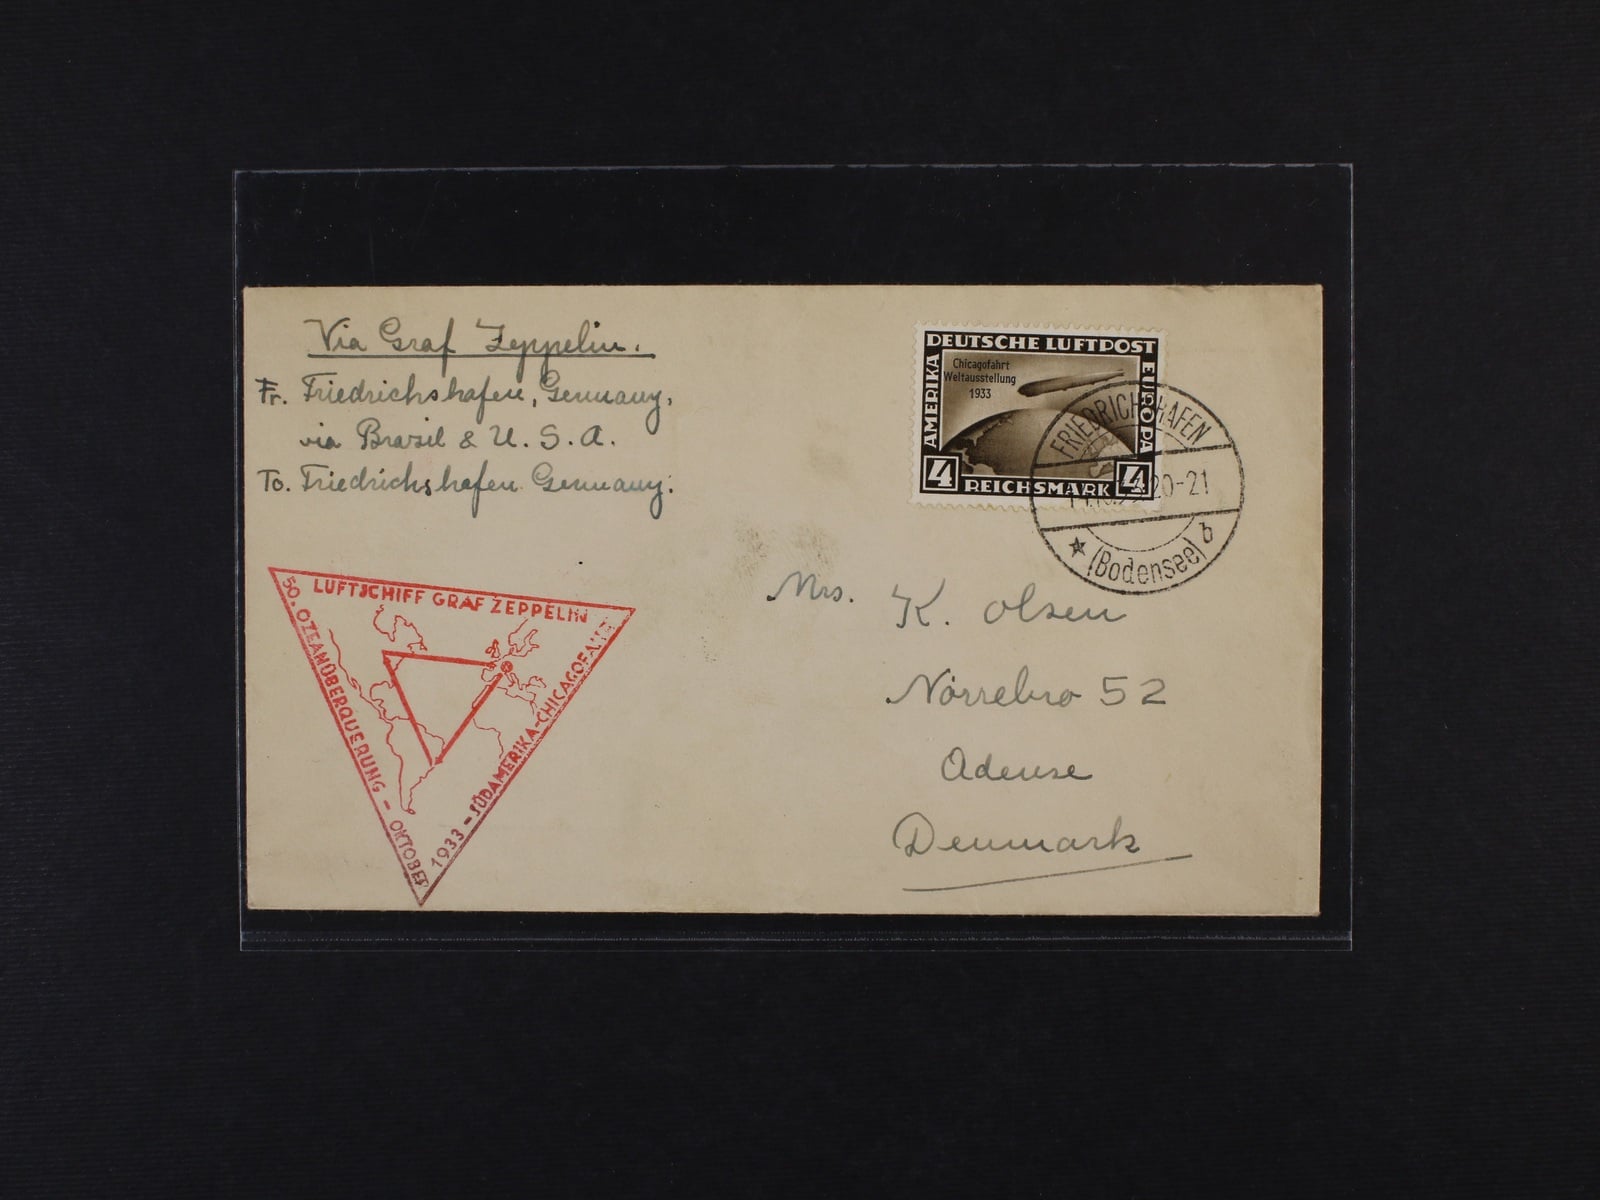 Via Graf Zeppelin.
Fr. Friedrichshafen, Germany,
via Brazil & U. S. A.
To. Friedrichshafen Germany.
DEUTSCHE LUFTPOST
AMERIKA
EUROPA
Chicagofahrt
Weltausstellung
1933
4
4
REICHSMARK
FRIEDRICHSHAFEN
20-21
(Bodensee) b
LUFTSCHIFF GRAF ZEPPELIN
50. OZEANÜBERQUERUNG - OKTOBER
1933 - SÜDAMERIKA-CHICAGOFAHRT
Mrs. K. Olsen
Nörrebro 52
Odense
Denmark